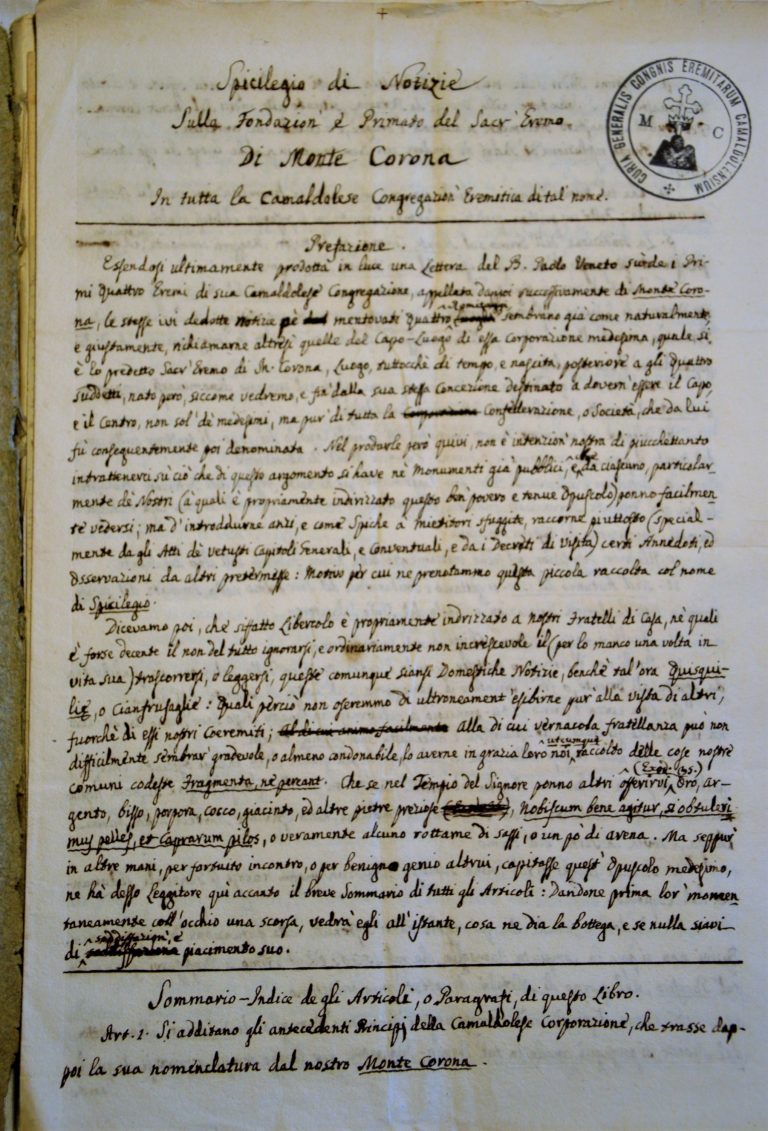 Spicilegio di Notizie
Sulla Fondazion' e Primato del Sacr' Eremo
Di Monte Corona
In tutta la Camaldolese Congregazion' Eremitica di tal' nome.
CURIA GENERALIS CONGNIS EREMITARUM CAMALDULENSIUM
M C
Prefazione.
Essendosi ultimamente prodotta in luce una Lettera del B. Paolo Veneto su i Pri-
mi quattro Eremi di sua Camaldolese Congregazione, appellata da poi successivamente di Monte Coro-
na, le stesse ivi dedotte Notizie mentovati quattro sembrano già come naturalmente,
e giustamente, richiamarne altresì quelle del Capo-Luogo di essa Corporazione medesima, quale si
è lo predetto Sacr' Eremo di M. Corona, Luogo, tuttocchè di tempo, e nascita, posteriore a gli quattro
suddetti, nato però, siccome vedremo, e fin dalla sua stessa Concezione destinato a dovern' essere il Capo,
e il Centro, non sol' de' medesimi, ma pur' di tutta la Corporazione Confederazione, o Società, che da lui
fù conseguentemente poi denominata. Nel produrle però quivi, non è intenzion' nostra di piucchettanto
intrattenerci sù ciò che di questo argomento si have ne' Monumenti già pubblici, e da ciascuno, particolar-
mente de' Nostri (a' quali è propriamente indirizzato questo ben povero e tenue Opuscolo) ponno facilmen
te vedersi; ma d' introddurne anzi, e come spiche a' mietitori sfuggite, raccorne piuttosto (special-
mente da gli Atti de' vetusti Capitoli Generali, e Conventuali, e da i Decreti di Visita) certi Annedoti, ed
Osservazioni da altri pretermesse: Motivo per cui ne prenotammo questa piccola raccolta col nome
di Spicilegio.
Dicevamo poi, che siffatto Libercolo è propriamente indirizzato a nostri Fratelli di Casa, ne' quali
è forse decente il non del tutto ignorarsi, e ordinariamente non increscevole il (per lo manco una volta in
vita sua) trascorrersi, o leggersi, queste comunque siansi Domestiche Notizie, benchè tal'ora Quisqui-
lie, o Cianfrusaglie: Quali perciò non oseremmo di ultroneament' esibirne pur' alla vista di altri,
fuorchè di essi nostri Coeremiti; Al di cui animo facilmente Alla di cui vernacola fratellanza può non
difficilmente sembrar' gradevole, o almeno condonabile, lo averne in grazia loro noi utcumque raccolto delle cose nostre
comuni codeste Fragmenta, ne pereant. Che se nel Tempio del Signore ponno altri offerirvi (Exod. 35.) Oro, ar-
gento, bisso, porpora, cocco, giacinto, ed altre pietre preziose, Nobiscum bene agitur, si obtuleri
mus pelles, et Caprarum pilos, o veramente alcuno rottame di sassi, o un pò di avena. Ma seppur'
in altre mani, per fortuito incontro, o per benigno genio altrui, capitasse quest' Opuscolo medesimo,
ne ha desso Leggitore quì accanto il breve Sommario di tutti gli Articoli: Dandone prima lor' momen
taneamente coll' occhio una scorsa, vedrà egli all' istante, cosa ne dia la bottega, e se nulla siavi
di soddisfazion', e piacimento suo.
Sommario-Indice de gli Articoli, o Paragrafi, di questo Libro.
Art. 1. Si additano gli antecedenti Principj della Camaldolese Corporazione, che trasse dap-
poi la sua nomenclatura dal nostro Monte Corona.